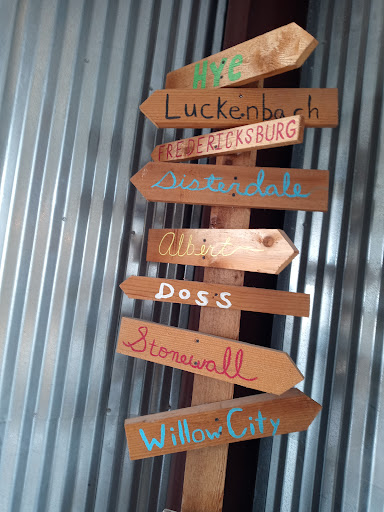 Hye
Luckenbach
FREDERICKSBURG
Sisterdale
Albert
DOSS
Stonewall
Willow City